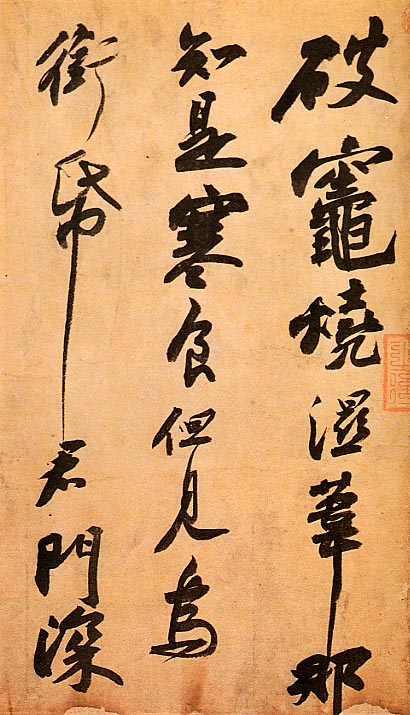 破竈燒湿葦那
知是寒食但見烏
銜帋君門深